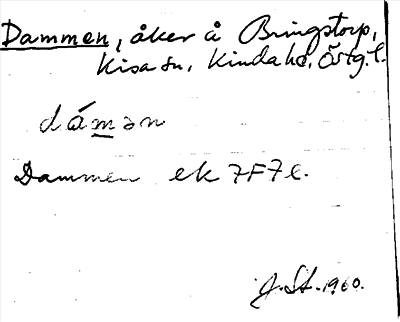 Dammen, åker å Bringstorp,
Kisa sn, Kinda hd, Östg. l.
dáman
Dammen ek 7F7e.
J. St. 1960.